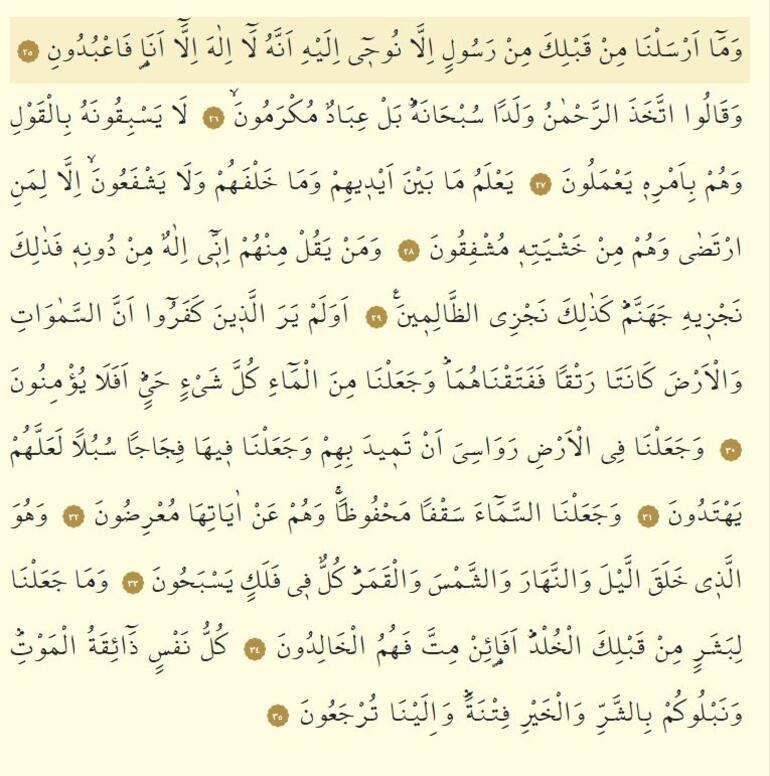 وَمَٓا اَرْسَلْنَا مِنْ قَبْلِكَ مِنْ رَسُولٍ اِلَّا نُوحٖٓي اِلَيْهِ اَنَّهُ لَٓا اِلٰهَ اِلَّٓا اَنَا۬ فَاعْبُدُونِ ٢٥
وَقَالُوا اتَّخَذَ الرَّحْمٰنُ وَلَدًا سُبْحَانَهُؕ بَلْ عِبَادٌ مُكْرَمُونَۙ ٢٦ لَا يَسْبِقُونَهُ بِالْقَوْلِ
وَهُمْ بِاَمْرِهٖ يَعْمَلُونَ ٢٧ يَعْلَمُ مَا بَيْنَ اَيْدٖيهِمْ وَمَا خَلْفَهُمْ وَلَا يَشْفَعُونَۙ اِلَّا لِمَنِ
ارْتَضٰى وَهُمْ مِنْ خَشْيَتِهٖ مُشْفِقُونَ ٢٨ وَمَنْ يَقُلْ مِنْهُمْ اِنّٖٓي اِلٰهٌ مِنْ دُونِهٖ فَذٰلِكَ
نَجْزٖيهِ جَهَنَّمَؕ كَذٰلِكَ نَجْزِي الظَّالِمٖينَࣖ ٢٩ اَوَلَمْ يَرَ الَّذٖينَ كَفَرُٓوا اَنَّ السَّمٰوَاتِ
وَالْاَرْضَ كَانَتَا رَتْقًا فَفَتَقْنَاهُمَاؕ وَجَعَلْنَا مِنَ الْمَٓاءِ كُلَّ شَيْءٍ حَيٍّؕ اَفَلَا يُؤْمِنُونَ
٣٠ وَجَعَلْنَا فِي الْاَرْضِ رَوَاسِيَ اَنْ تَمٖيدَ بِهِمْ وَجَعَلْنَا فٖيهَا فِجَاجًا سُبُلًا لَعَلَّهُمْ
يَهْتَدُونَ ٣١ وَجَعَلْنَا السَّمَٓاءَ سَقْفًا مَحْفُوظًاۚ وَهُمْ عَنْ اٰيَاتِهَا مُعْرِضُونَ ٣٢ وَهُوَ
الَّذٖي خَلَقَ الَّيْلَ وَالنَّهَارَ وَالشَّمْسَ وَالْقَمَرَؕ كُلٌّ فٖي فَلَكٍ يَسْبَحُونَ ٣٣ وَمَا جَعَلْنَا
لِبَشَرٍ مِنْ قَبْلِكَ الْخُلْدَؕ اَفَا۬ئِنْ مِتَّ فَهُمُ الْخَالِدُونَ ٣٤ كُلُّ نَفْسٍ ذَٓائِقَةُ الْمَوْتِؕ
وَنَبْلُوكُمْ بِالشَّرِّ وَالْخَيْرِ فِتْنَةًؕ وَاِلَيْنَا تُرْجَعُونَ ٣٥